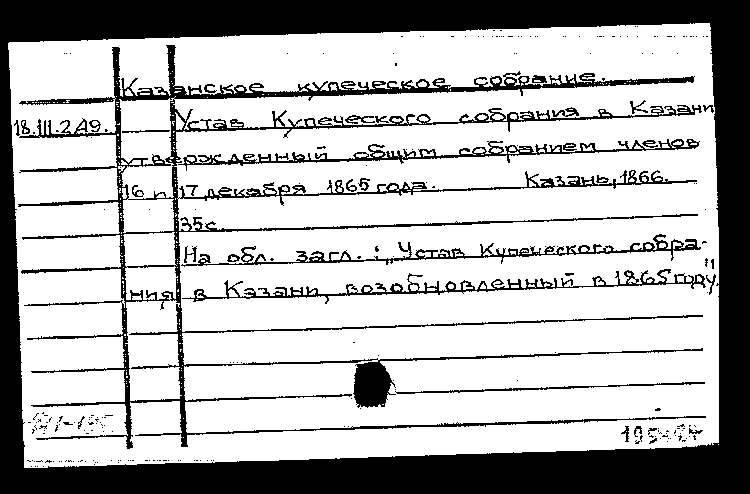 Казанское купеческое собрание.
18.III.2.А9. Устав Купеческого собрания в Казани
утвержденный общим собранием членов
16 и 17 декабря 1865 года. Казань, 1866.
35с.
На обл. загл.: „Устав Купеческого собра-
ния в Казани, возобновленный в 1865 году"